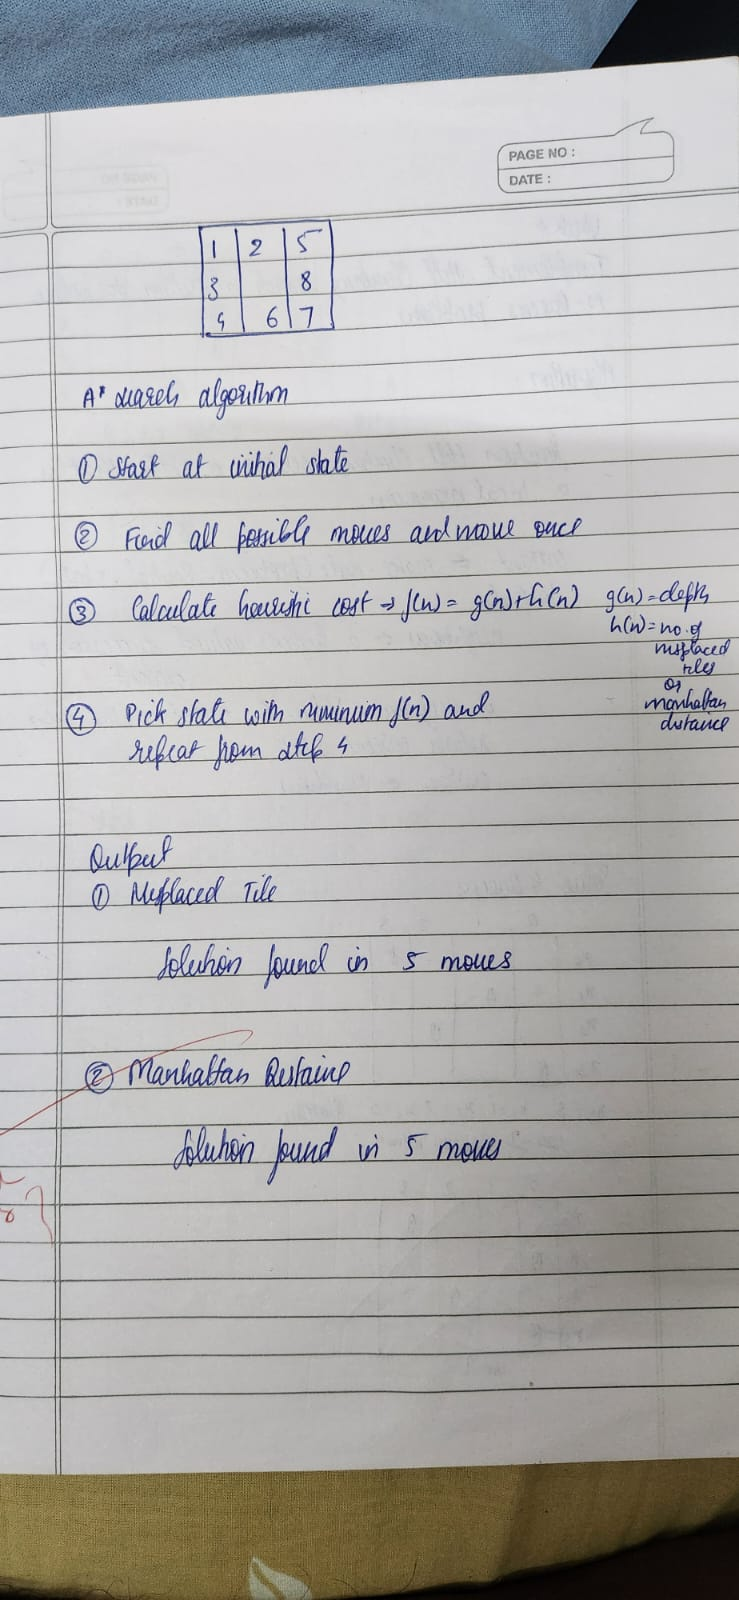 PAGE NO :
DATE :
1 2 5
3 8
4 6 7
A* search algorithm
① Start at initial state
② Find all possible moves and move once
③ Calculate heuristic cost → f(n) = g(n) + h(n) g(n) = depth
h(n) = no. of
misplaced
tiles
or
manhattan
distance
④ Pick state with minimum f(n) and
repeat from step 4
Output
① Misplaced Tile
Solution found in 5 moves
② Manhattan Distance
Solution found in 5 moves